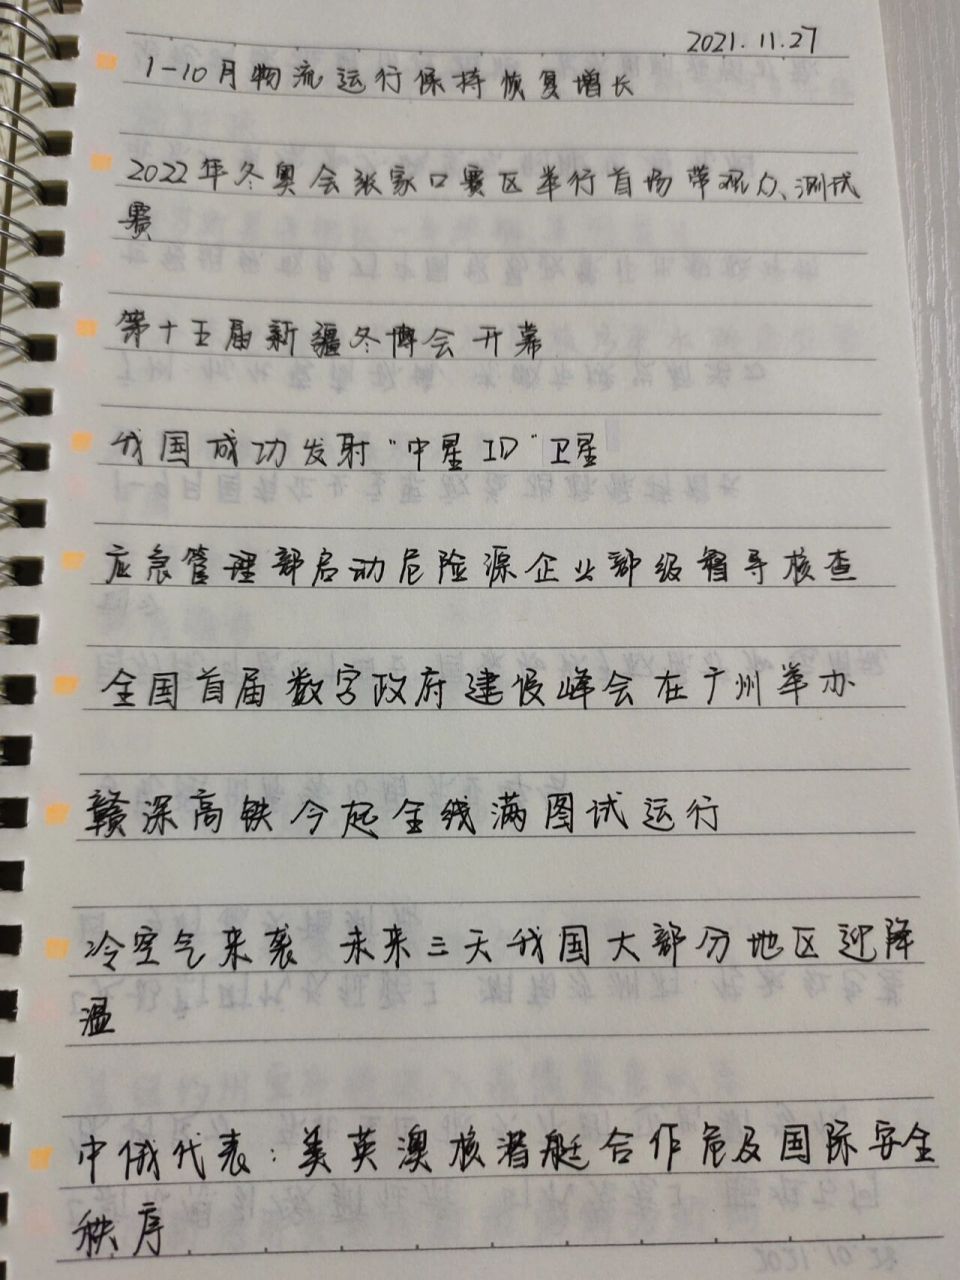 2021.11.27
1-10月物流运行保持恢复增长
2022年冬奥会张家口赛区举行首场带观众测试
赛
第十五届新疆冬博会开幕
我国成功发射"中星1D"卫星
应急管理部启动危险源企业部级督导核查
全国首届数字政府建设峰会在广州举办
赣深高铁今起全线满图试运行
冷空气来袭 未来三天我国大部分地区迎降
温
中俄代表:美英澳核潜艇合作危及国际安全
秩序